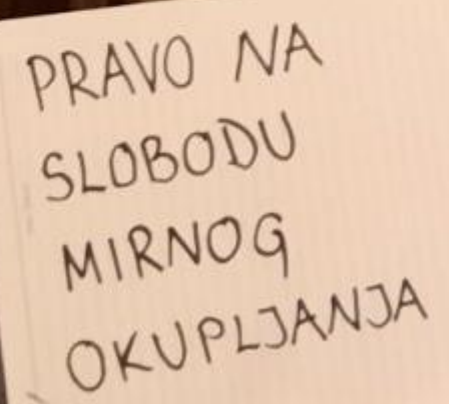 PRAVO NA
SLOBODU
MIRNOG
OKUPLJANJA